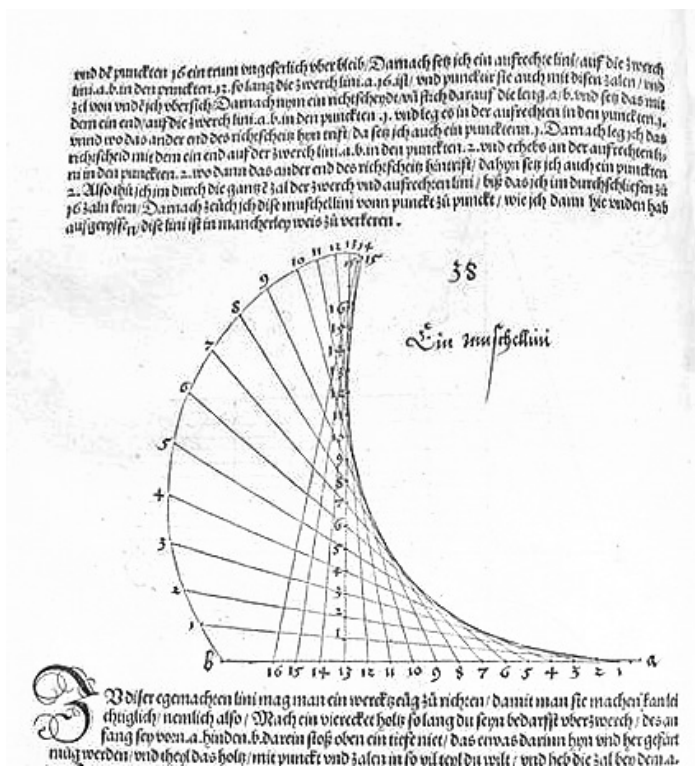 vnd dē puncktten 16 ein trum vngeferlich vber bleib/Darnach setz ich ein aufrechte lini/auf die zwerch
lini.a.b.in den puncktten.13.so lang die zwerch lini.a.16.ist/vnd punctir sie auch mit disen zalen/vnd
zel von vndē ich vbersich/Darnach nym ein richtscheydt/vñ stich darauf die leng.a/b.vnd setz das mit
dem ein end/auf die zwerch lini.a.b.in den puncktten .1. vnd leg es in der aufrechten in den puncktten.1.
vnnd wo das ander end des richtscheitz hyn trift/da setz ich auch ein puncktenn.1.Darnach leg ich das
richtscheid mit dem ein end auf der zwerch lini.a.b.in den puncktten.2.vnd erhebs an der aufrechten li-
ni in den puncktten.2.wo dann das ander end des richtscheitz hintrift/da hyn setz ich auch ein puncktten
2.Also thū ich im durch die gantzē zal der zwerch vnd aufrechten lini/biß das ich im durchschliefen zū
16 zaln kom/Darnach zeuch ich dise muschellini vonn punckt zū punckt/wie ich dann hie vnden hab
aufgeryssen/dise lini ist in mancherley weis zū verkeren.
38
Ein muschellini
12 13 14
10 11 15
9
8
7
6
5
4
3
2
1
16
15
14
13
12
11
10
9
8
7
6
5
4
3
2
1
b 16 15 14 13 12 11 10 9 8 7 6 5 4 3 2 1 a
ZV diser egemachten lini mag man ein werckzeüg zū richten/damit man sie machen kan lei
chtiglich/nemlich also/Mach ein vierecket holtz so lang du seyn bedarfst vberzwerch/des an
fang sey vorn.a.hinden.b.darein stoß oben ein tiefe niet/das etwas darinn hyn vnd her gefürt
müg werden/vnd theyl das holtz/mit punckt vnd zalen in so vil teyl du wilt/vnd heb die zal bey dem.a.